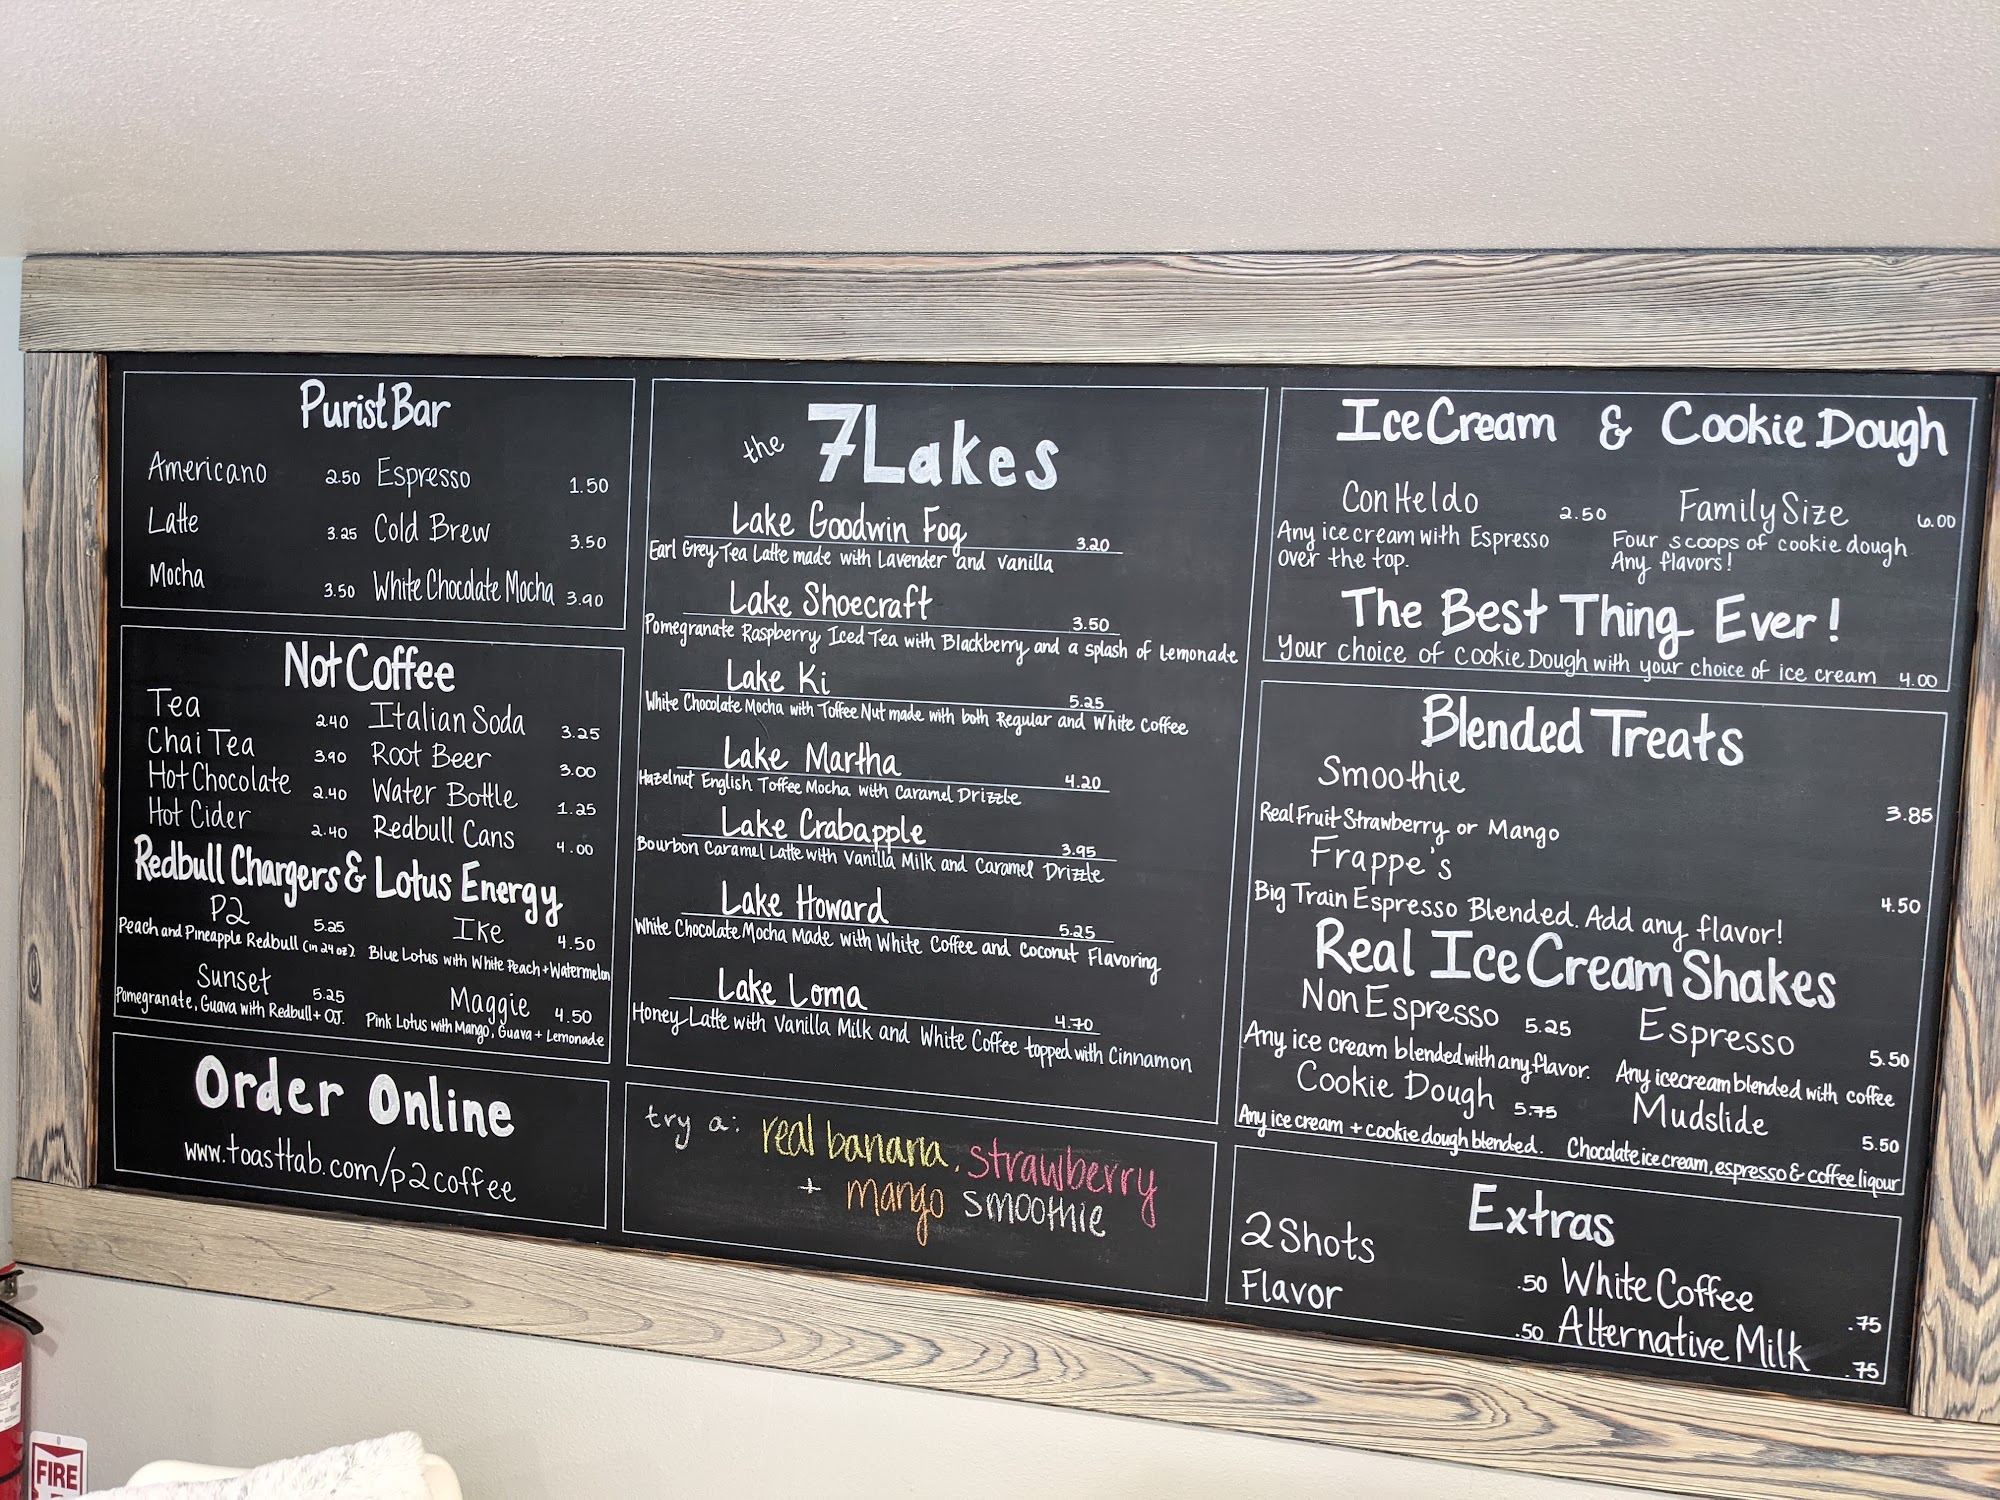 Purist Bar
Americano 2.50 Espresso 1.50
Latte 3.25 Cold Brew 3.50
Mocha 3.50 White Chocolate Mocha 3.90
Not Coffee
Tea 2.40 Italian Soda 3.25
Chai Tea 3.90 Root Beer 3.00
Hot Chocolate 2.40 Water Bottle 1.25
Hot Cider 2.40 Redbull Cans 4.00
Redbull Chargers & Lotus Energy
P2 5.25 Ike 4.50
Peach and Pineapple Redbull (in 24 oz) Blue Lotus with White Peach + Watermelon
Sunset 5.25 Maggie 4.50
Pomegranate, Guava with Redbull + OJ. Pink Lotus with Mango, Guava + Lemonade
Order Online
www.toasttab.com/p2coffee
the 7 Lakes
Lake Goodwin Fog 3.20
Earl Grey Tea Latte made with Lavender and Vanilla
Lake Shoecraft 3.50
Pomegranate Raspberry Iced Tea with Blackberry and a splash of Lemonade
Lake Ki 5.25
White Chocolate Mocha with Toffee Nut made with both Regular and White Coffee
Lake Martha 4.20
Hazelnut English Toffee Mocha with Caramel Drizzle
Lake Crabapple 3.95
Bourbon Caramel Latte with Vanilla Milk and Caramel Drizzle
Lake Howard 5.25
White Chocolate Mocha Made with White Coffee and Coconut Flavoring
Lake Loma 4.70
Honey Latte with Vanilla Milk and White Coffee topped with Cinnamon
try a: real banana, strawberry
+ mango smoothie
Ice Cream & Cookie Dough
Con Heldo 2.50 Family Size 6.00
Any ice cream with Espresso Four scoops of cookie dough.
over the top. Any flavors!
The Best Thing Ever!
Your choice of Cookie Dough with your choice of ice cream 4.00
Blended Treats
Smoothie 3.85
Real Fruit Strawberry or Mango
Frappe's 4.50
Big Train Espresso Blended. Add any flavor!
Real Ice Cream Shakes
Non Espresso 5.25 Espresso 5.50
Any ice cream blended with any flavor. Any icecream blended with coffee
Cookie Dough 5.75 Mudslide 5.50
Any ice cream + cookie dough blended. Chocolate ice cream, espresso & coffee liqour
Extras
2 Shots .50 White Coffee .75
Flavor .50 Alternative Milk .75
FIRE